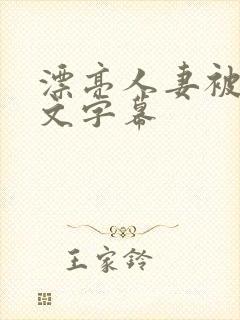 漂亮人妻被
文字幕
王家铃